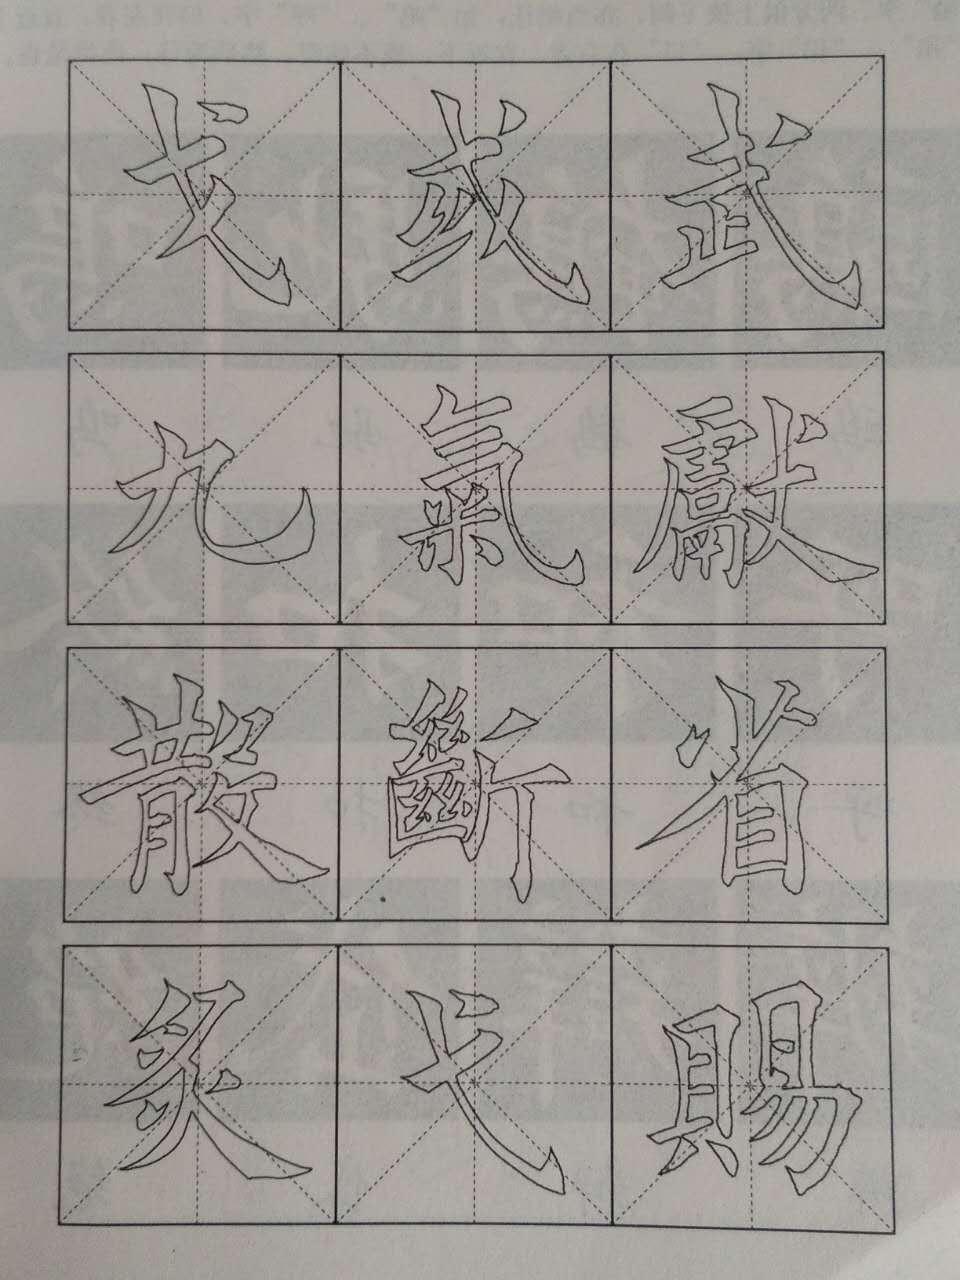 戈或武
九氣獻
散斷省
炙弋賜